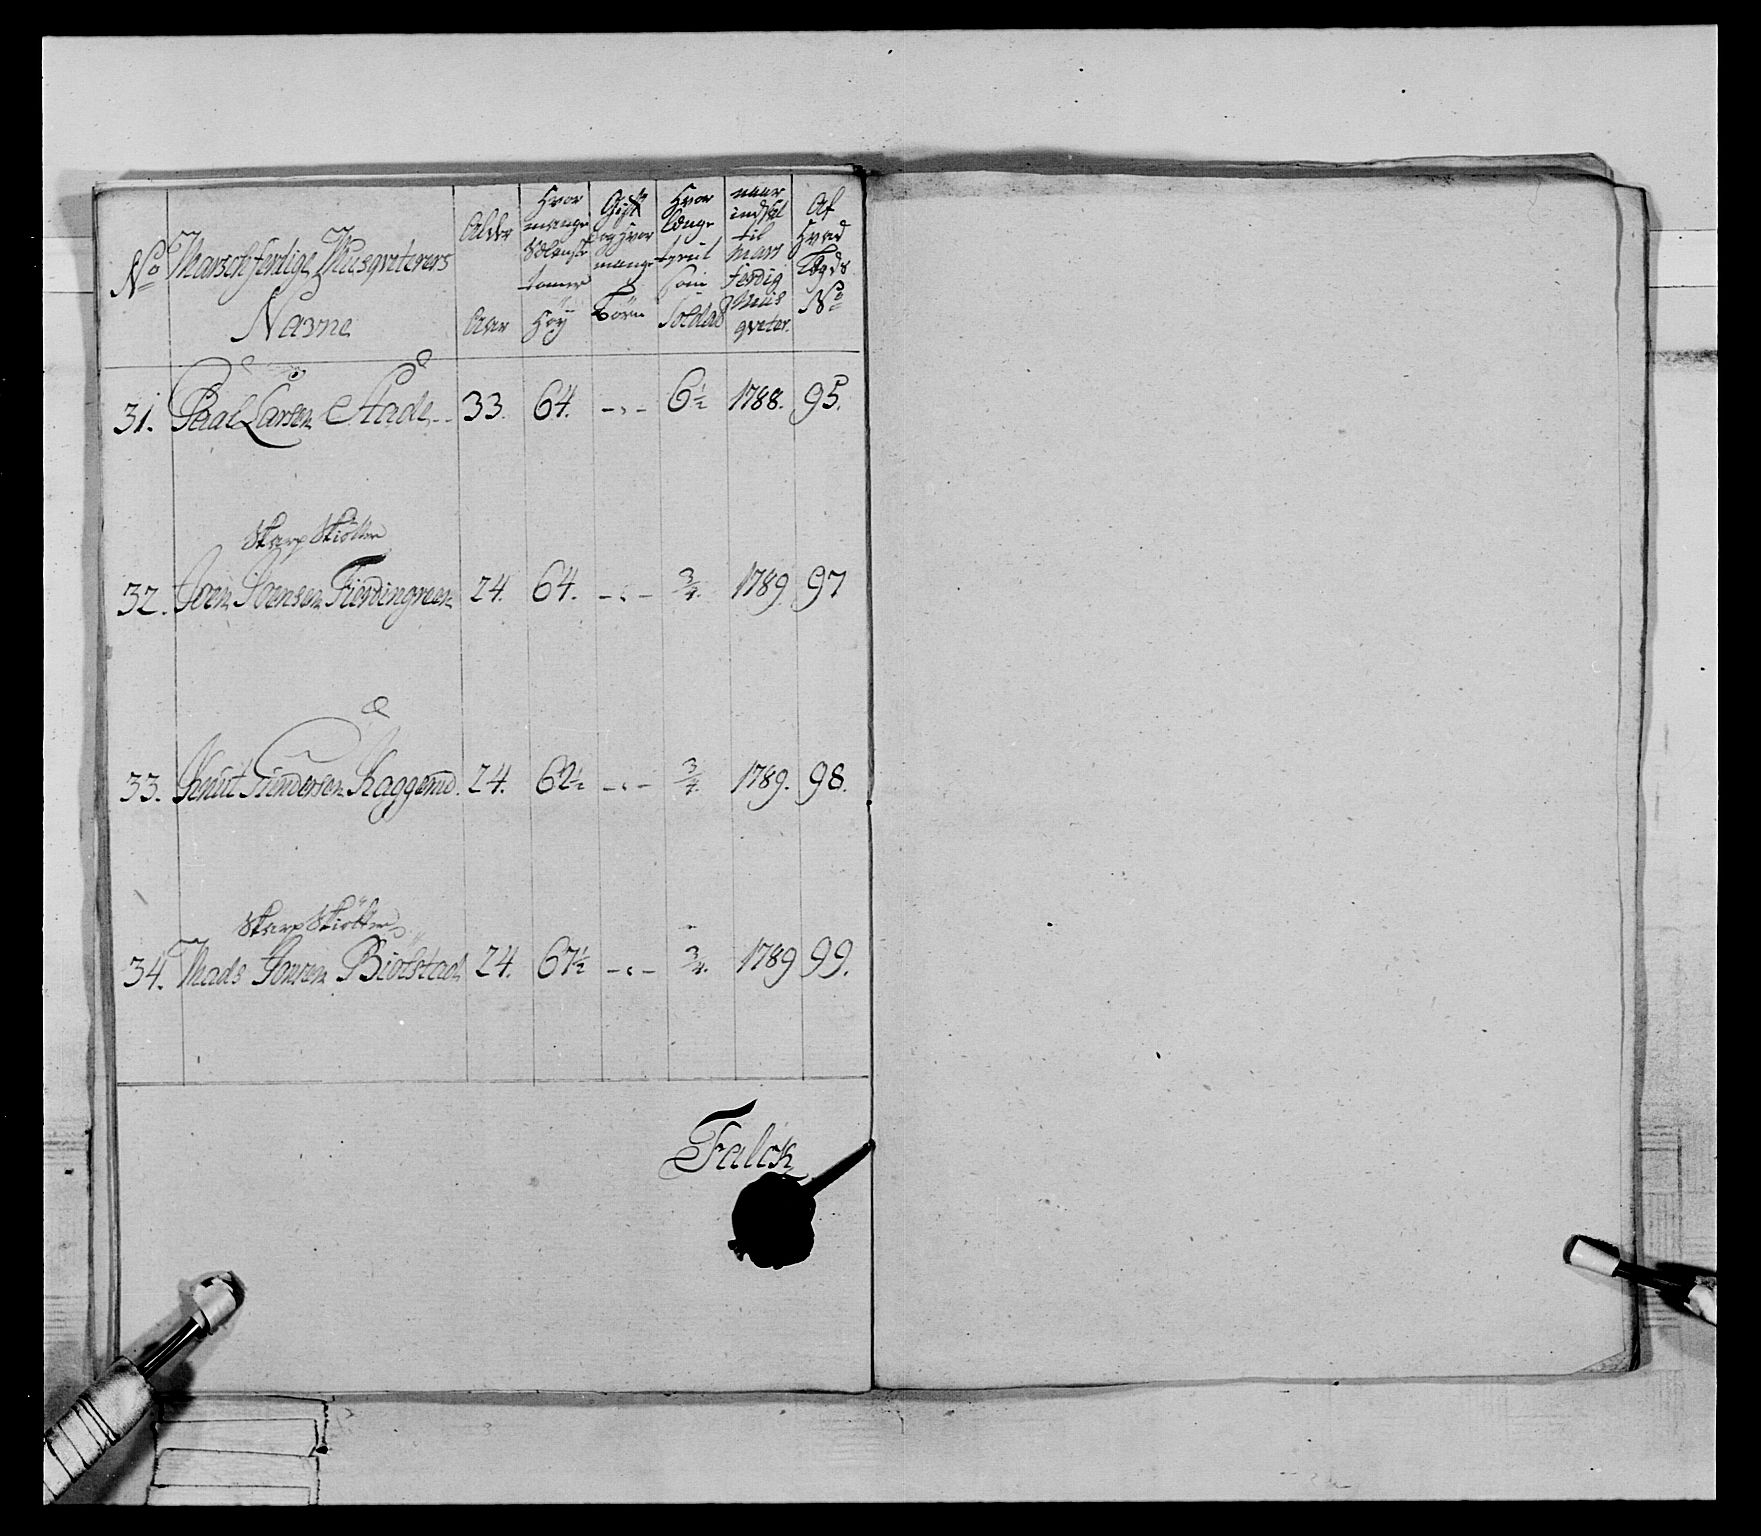 No Marschferdige Musqveterers Navne
Alder Aar
Hvor mange tomer Høy
Gift og Hvor mange Børn
Hvor længe tient som Soldat
naar indsat til mars ferdig Mus qveter.
Af Hvad Lægds No
31. Paal Larsen Aade 33. 64. -"- 6½ 1788. 95.
Skarp Skiötter
32. Joen Joensen Fierdingreen 24. 64. -"- ¾. 1789. 97
33. Knut Gundersen Kaggerud. 24. 62½ -"- ¾. 1789. 98.
Skarp Skiötter
34. Mads Jonsen Biötstad 24. 67½ -"- ¾. 1789 99.
Falck